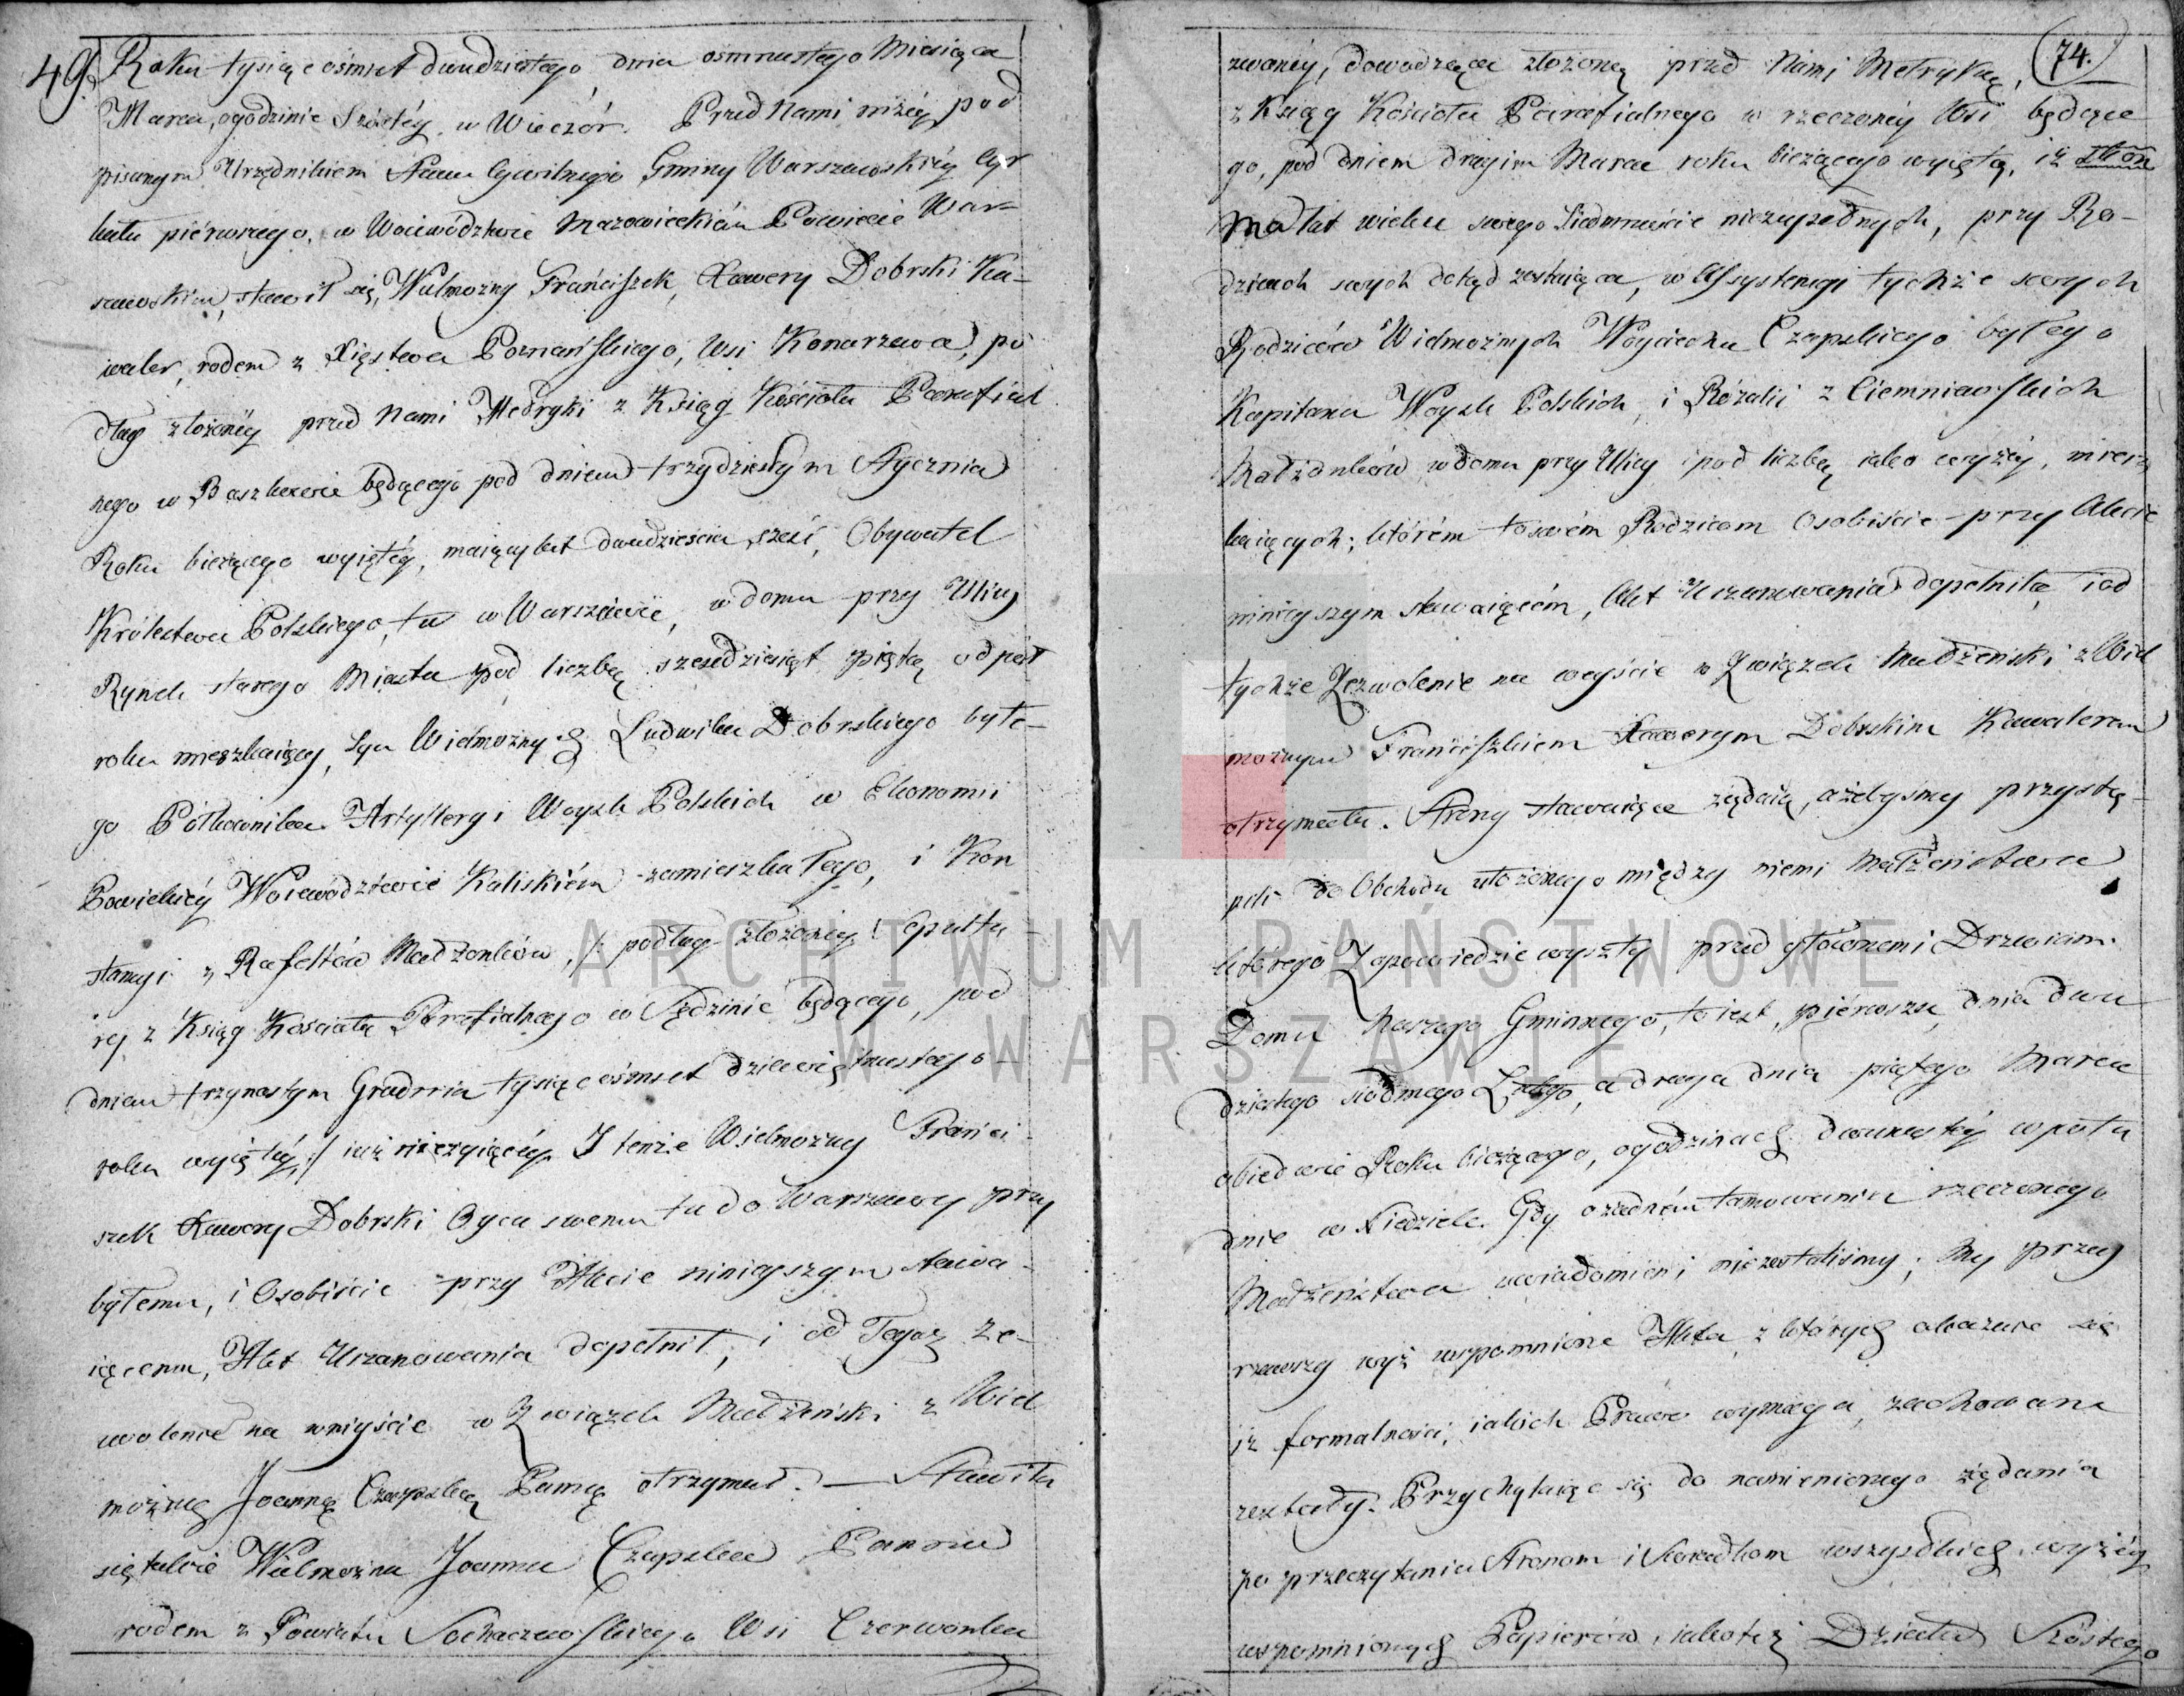 49. Roku tysiąc ośmset dwudziestego, dnia osmnastego Miesiąca
Marca, ogodzinie Szóstéy w Wieczór. Przed Nami niżéy pod
pisanym Urzędnikiem Stanu Cywilnego Gminy Warszawskiéy Cyr
kułu piérwszego, w Woiewództwie Mazowieckiém Powiecie War-
szawskim, stawił się, Wielmożny Franciszek, Xawery Dobrski Ka-
waler, rodem z Xięstwa Poznańskiego, Wsi Konarzewa, po
dług złożonéy przed Nami Metryki z Ksiąg Kościoła Parafial
nego w Baszkowie będącego pod dniem trzydziestym Stycznia
Roku bieżącego wyiętéy, maiący lat dwadzieścia sześć, Obywatel
Królestwa Polskiego, tu w Warszawie, w domu przy Ulicy
Rynek starego Miasta pod liczbą szesdziesiąt piątą od pół
roku mieszkaiący, syn Wielmożnych Ludwika Dobrskiego byłe-
go Półkownika Artylleryi Woysk Polskich w Ekonomii
Powiatéy Woiewództwie Kaliskiém zamieszkałego, i Kon
stancyi z Rafałtów Małżonków, /: podług złożonéy Sepultu-
ry z Ksiąg Kościoła Parafialnego w Sędzinie będącego, pod
dniem trzynastym Grudnia tysiąc ośmset dziewiętnastego
roku wyiętéy :/ iuż nieżyiącéy. I tenże Wielmożny Franci-
szek Xawery Dobrski Oycu swemu tu do Warszawy przy
byłemu, i Osobiście przy Akcie ninieyszym stawa-
iącemu, Akt Uszanowania dopełnił, i od Tegoż ze-
wolenie na wniyście w Związek Małżeński z Wiel
możną Joanną Czapską Panną otrzymał. — Stawiła
się także Wielmożna Joanna Czapska Panna
rodem z Powiatu Sochaczewskiego Wsi Czerwonka
74.
zwanéy, dowodząca złożoną przed Nami Metryką,
z Ksiąg Kościoła Parafialnego w rzeczonéy Wsi będące
go, pod dniem drugim Marca roku bieżącego wyiętą, iż
Ma lat wieku swego Siedmnaście niezupełnych, przy Ro-
dzicach swych dotąd zostaiąca, w Assystencyi tychże swych
Rodziców Wielmożnych Woyciecha Czapskiego byłego
Kapitana Woysk Polskich, i Rozalii z Ciemniewskich
Małżonków w domu przy Ulicy i pod liczbą iako wyżéy, miesz
kaiących; którém to swém Rodzicom Osobiście przy Akcie
ninieyszym stawaiącém, Akt Uszanowania dopełniła, i od
tychże Zezwolenie na weyście w Związek Małżeński z Wiel
możnym Franciszkiem Xawerym Dobrskim Kawalerem
otrzymała. Strony stawaiące żądaią, ażebyśmy przystą-
pili do Obchodu ułożonego między niemi Małżeństwa,
którego Zapowiedzie wyszły przed głównemi Drzwiami
Domu Naszego Gminnego, to iest, piérwsza dnia dwu
dziestego siódmego Lutego, a druga dnia piątego Marca
obiedwie Roku bieżącego, ogodzinach dwunastéy w połu
dnie w Niedziele. Gdy o żadném tamowaniu rzeczonego
Małżeństwa uwiadomieni niezostaliśmy; My przey
rzawszy wyż wspomnione Akta, z których okazuie się
iż formalności, iakich Prawo wymaga, zachowane
zostały. Przychylaiąc się do namienionego żądania
po przeczytaniu Stronom i Świadkom wszystkich wyżéy
wspomnionych Papierów, iakoteż Działu Szóstego
ARCHIWUM PAŃSTWOWE
W WARSZAWIE